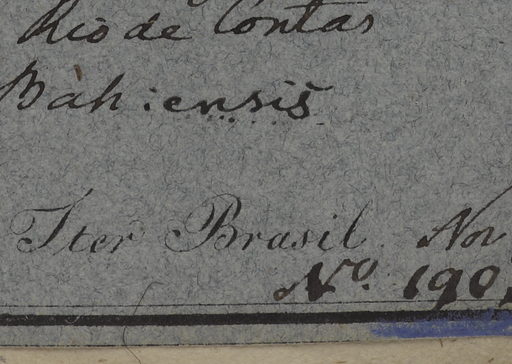 Rio de Contas
Bàh:ensis
Iter Brasil. Nov
Nº. 190